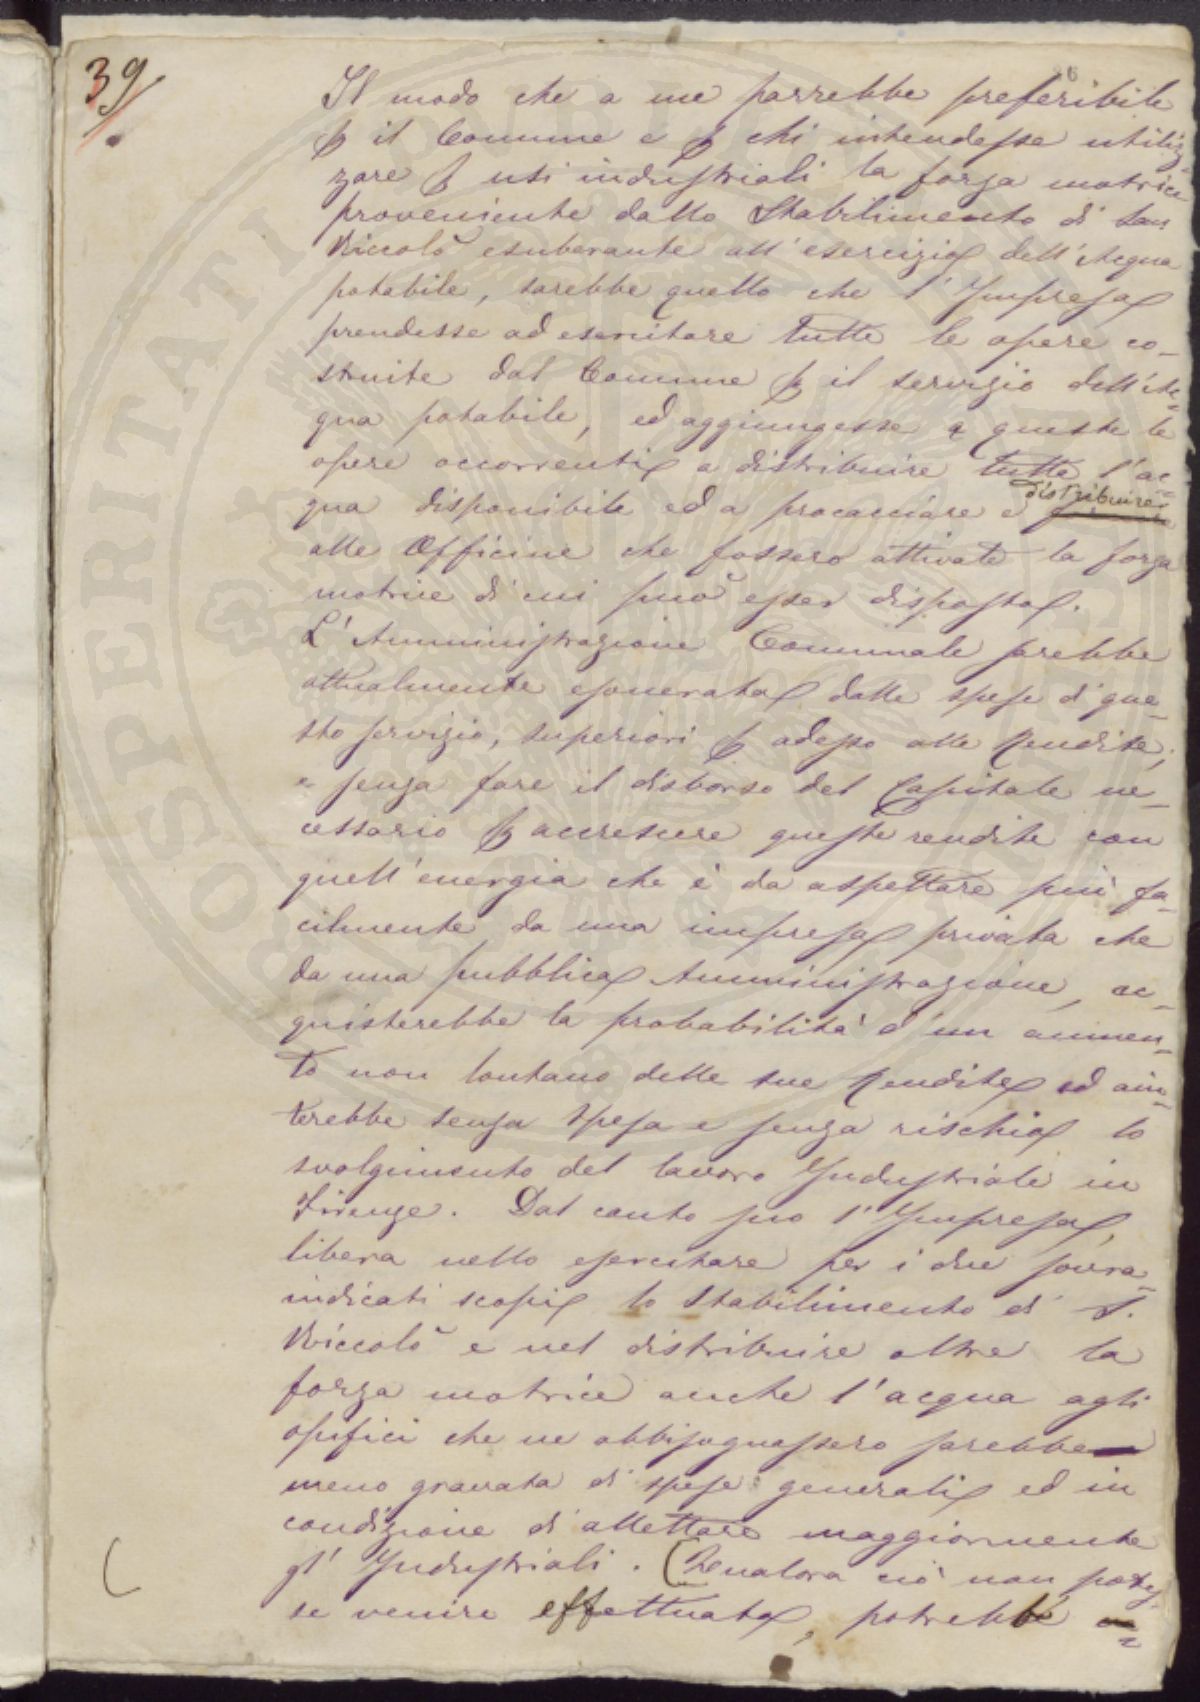 39
Il modo che a me parrebbe preferibile
p il Comune e p chi intendesse utiliz-
zare p usi industriali la forza motrice
proveniente dallo Stabilimento di San
Niccolò esuberante all'esercizio dell'Acqua
potabile, sarebbe quello che l'Impresa
prendesse ad esercitare tutte le opere co-
struite dal Comune p il servizio dell'Ac-
qua potabile, ed aggiungesse a queste le
opere occorrenti a distribuire tutta l'ac-
qua disponibile ed a procacciare e distribuire
alle Officine che fossero attivate la forza
motrice di cui può esser disposta.
L'Amministrazione Comunale sarebbe
attualmente esonerata dalle spese di que-
sto servizio, superiori p adesso alle Rendite;
e senza fare il disborso del Capitale ne-
cessario p accrescere queste rendite con
quell'energia che è da aspettare più fa-
cilmente da una impresa privata che
da una pubblica Amministrazione, ac-
quisterebbe la probabilità d'un aumen-
to non lontano delle sue Rendite ed aiu-
terebbe senza spesa e senza rischio lo
svolgimento del lavoro Industriale in
Firenze. Dal canto suo l'Impresa,
libera nello esercitare per i due sovra-
indicati scopi lo Stabilimento di S.
Niccolò e nel distribuire oltre la
forza motrice anche l'acqua agli
opifici che ne abbisognassero sarebbe
meno gravata di spese generali ed in
condizione di allettare maggiormente
gl'Industriali. (Qualora ciò non potes-
se venire effettuato, potrebbe
SOSPERITATI PUBLICAE